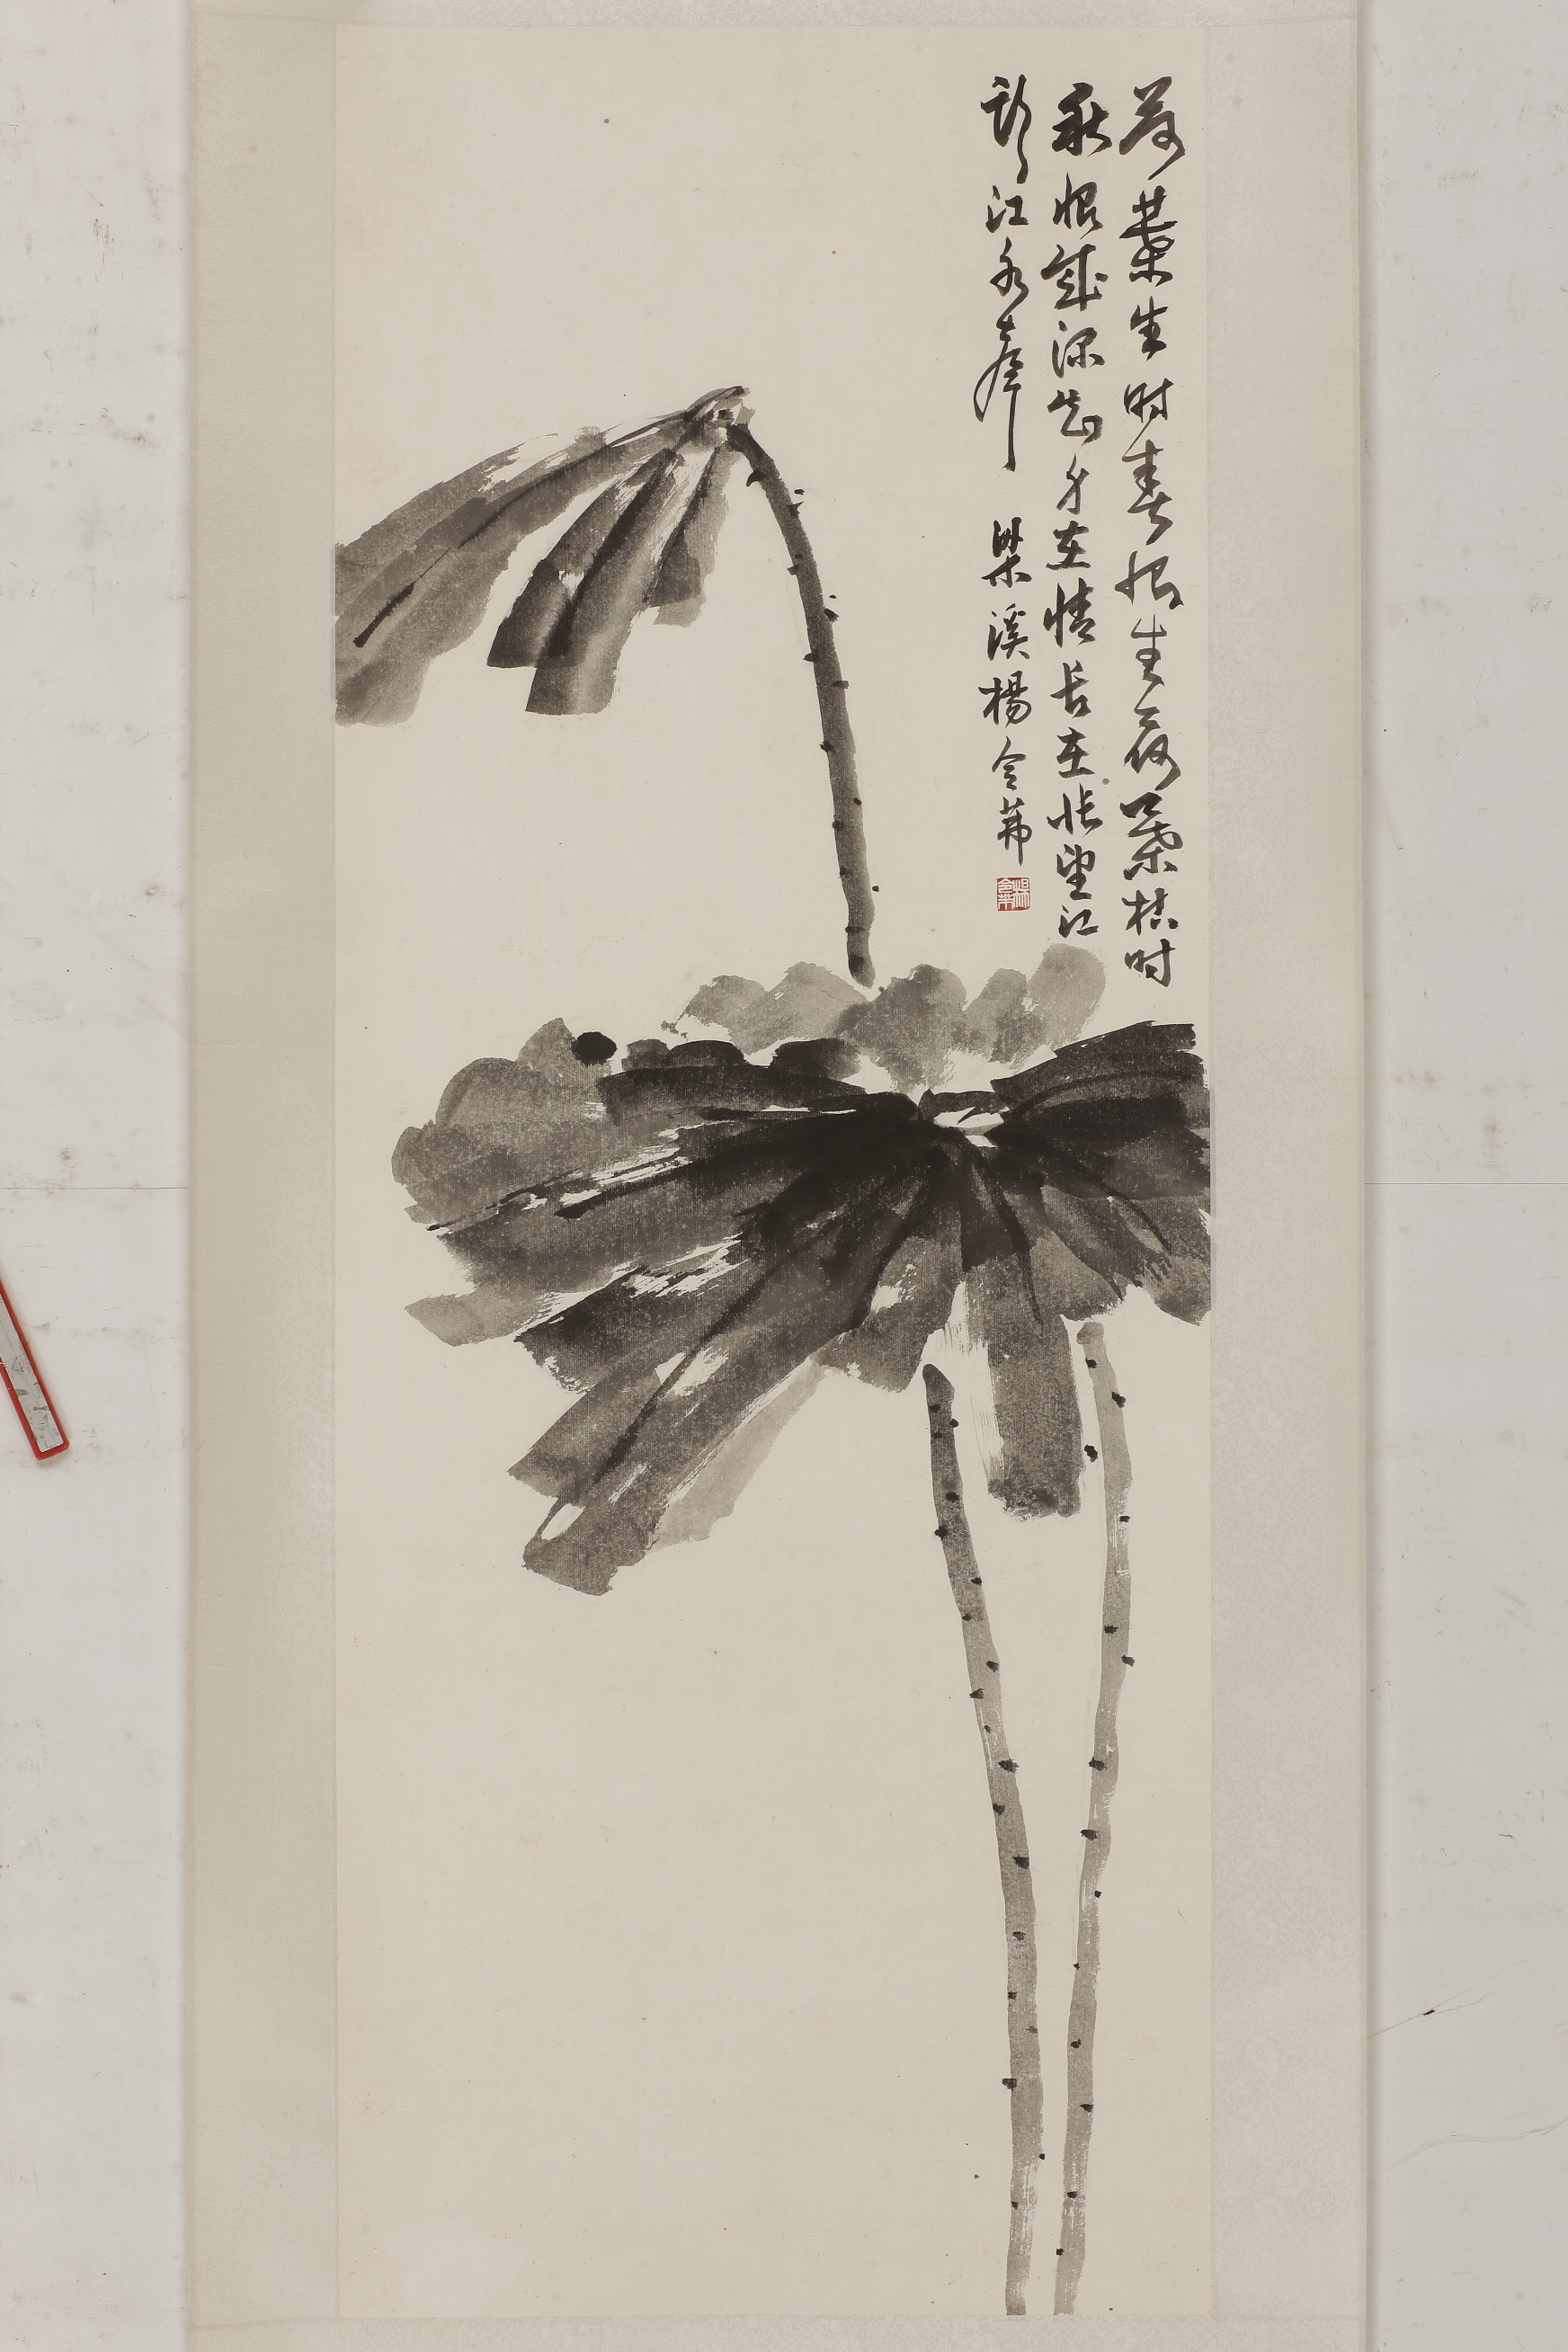 荷葉生时春恨生荷葉枯时
秋恨成深知身在情長在悵望江
頭江水聲 梁溪楊令茀
楊令茀